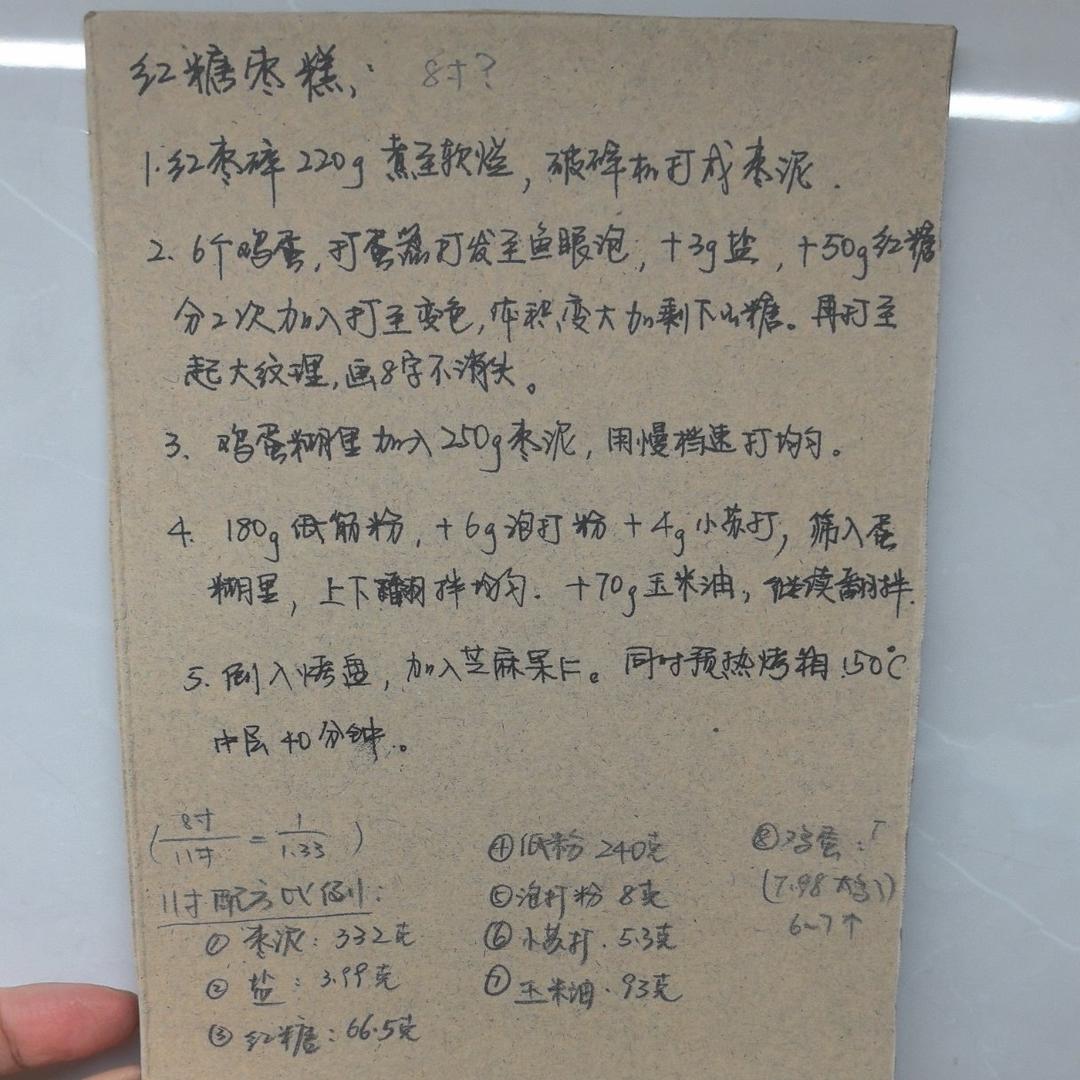 红糖枣糕: 8寸?
1.红枣碎220g煮至软烂,破碎机打成枣泥.
2. 6个鸡蛋,打蛋器打发至鱼眼泡,+3g盐,+50g红糖
分2次加入打至变色,体积变大加剩下的糖。再打至
起大纹理,画8字不消失。
3. 鸡蛋糊里加入250g枣泥,用慢档速打均匀。
4. 180g低筋粉,+6g泡打粉+4g小苏打,筛入蛋
糊里,上下翻拌均匀.+70g玉米油,继续翻拌.
5. 倒入烤盘,加入芝麻果仁。同时预热烤箱150℃
中层40分钟。
(8寸/11寸 = 1/1.33)
11寸配方比例:
① 枣泥:332克
② 盐:3.99克
③ 红糖:66.5克
④低粉 240克
⑤泡打粉 8克
⑥小苏打.5.3克
⑦玉米油.93克
⑧鸡蛋:
(7.98
6~7个